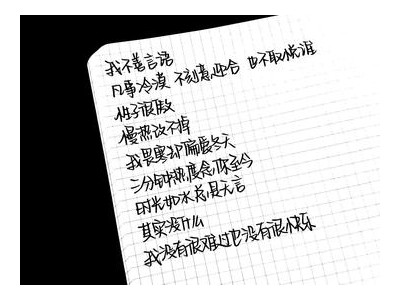 我不善言语
凡事冷漠 不刻意迎合 也不取悦谁
性子很散
慢热改不掉
我畏寒却偏爱冬天
三分钟热度念你至今
时光如水总是无言
其实没什么
我没有很难过也没有很快乐